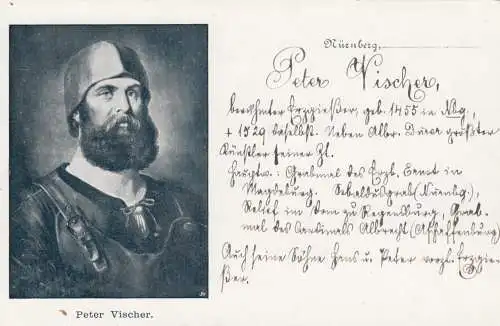 Nürnberg,
Peter Vischer,
berühmter Erzgießer, geb. 1455 in Nbg,
+ 1529 daselbst. Neben Albr. Dürer größter
Künstler seiner Zt.
Hauptw.: Grabmal des Erzb. Ernst in
Magdeburg. Sebaldusgrab (Nürnbg.),
Relief im Dom zu Regensburg, Grab-
mal des Cardinals Albrecht (Aschaffenburg)
Auch seine Söhne Hans u. Peter vorzl. Erzgie-
ßer.
Peter Vischer.